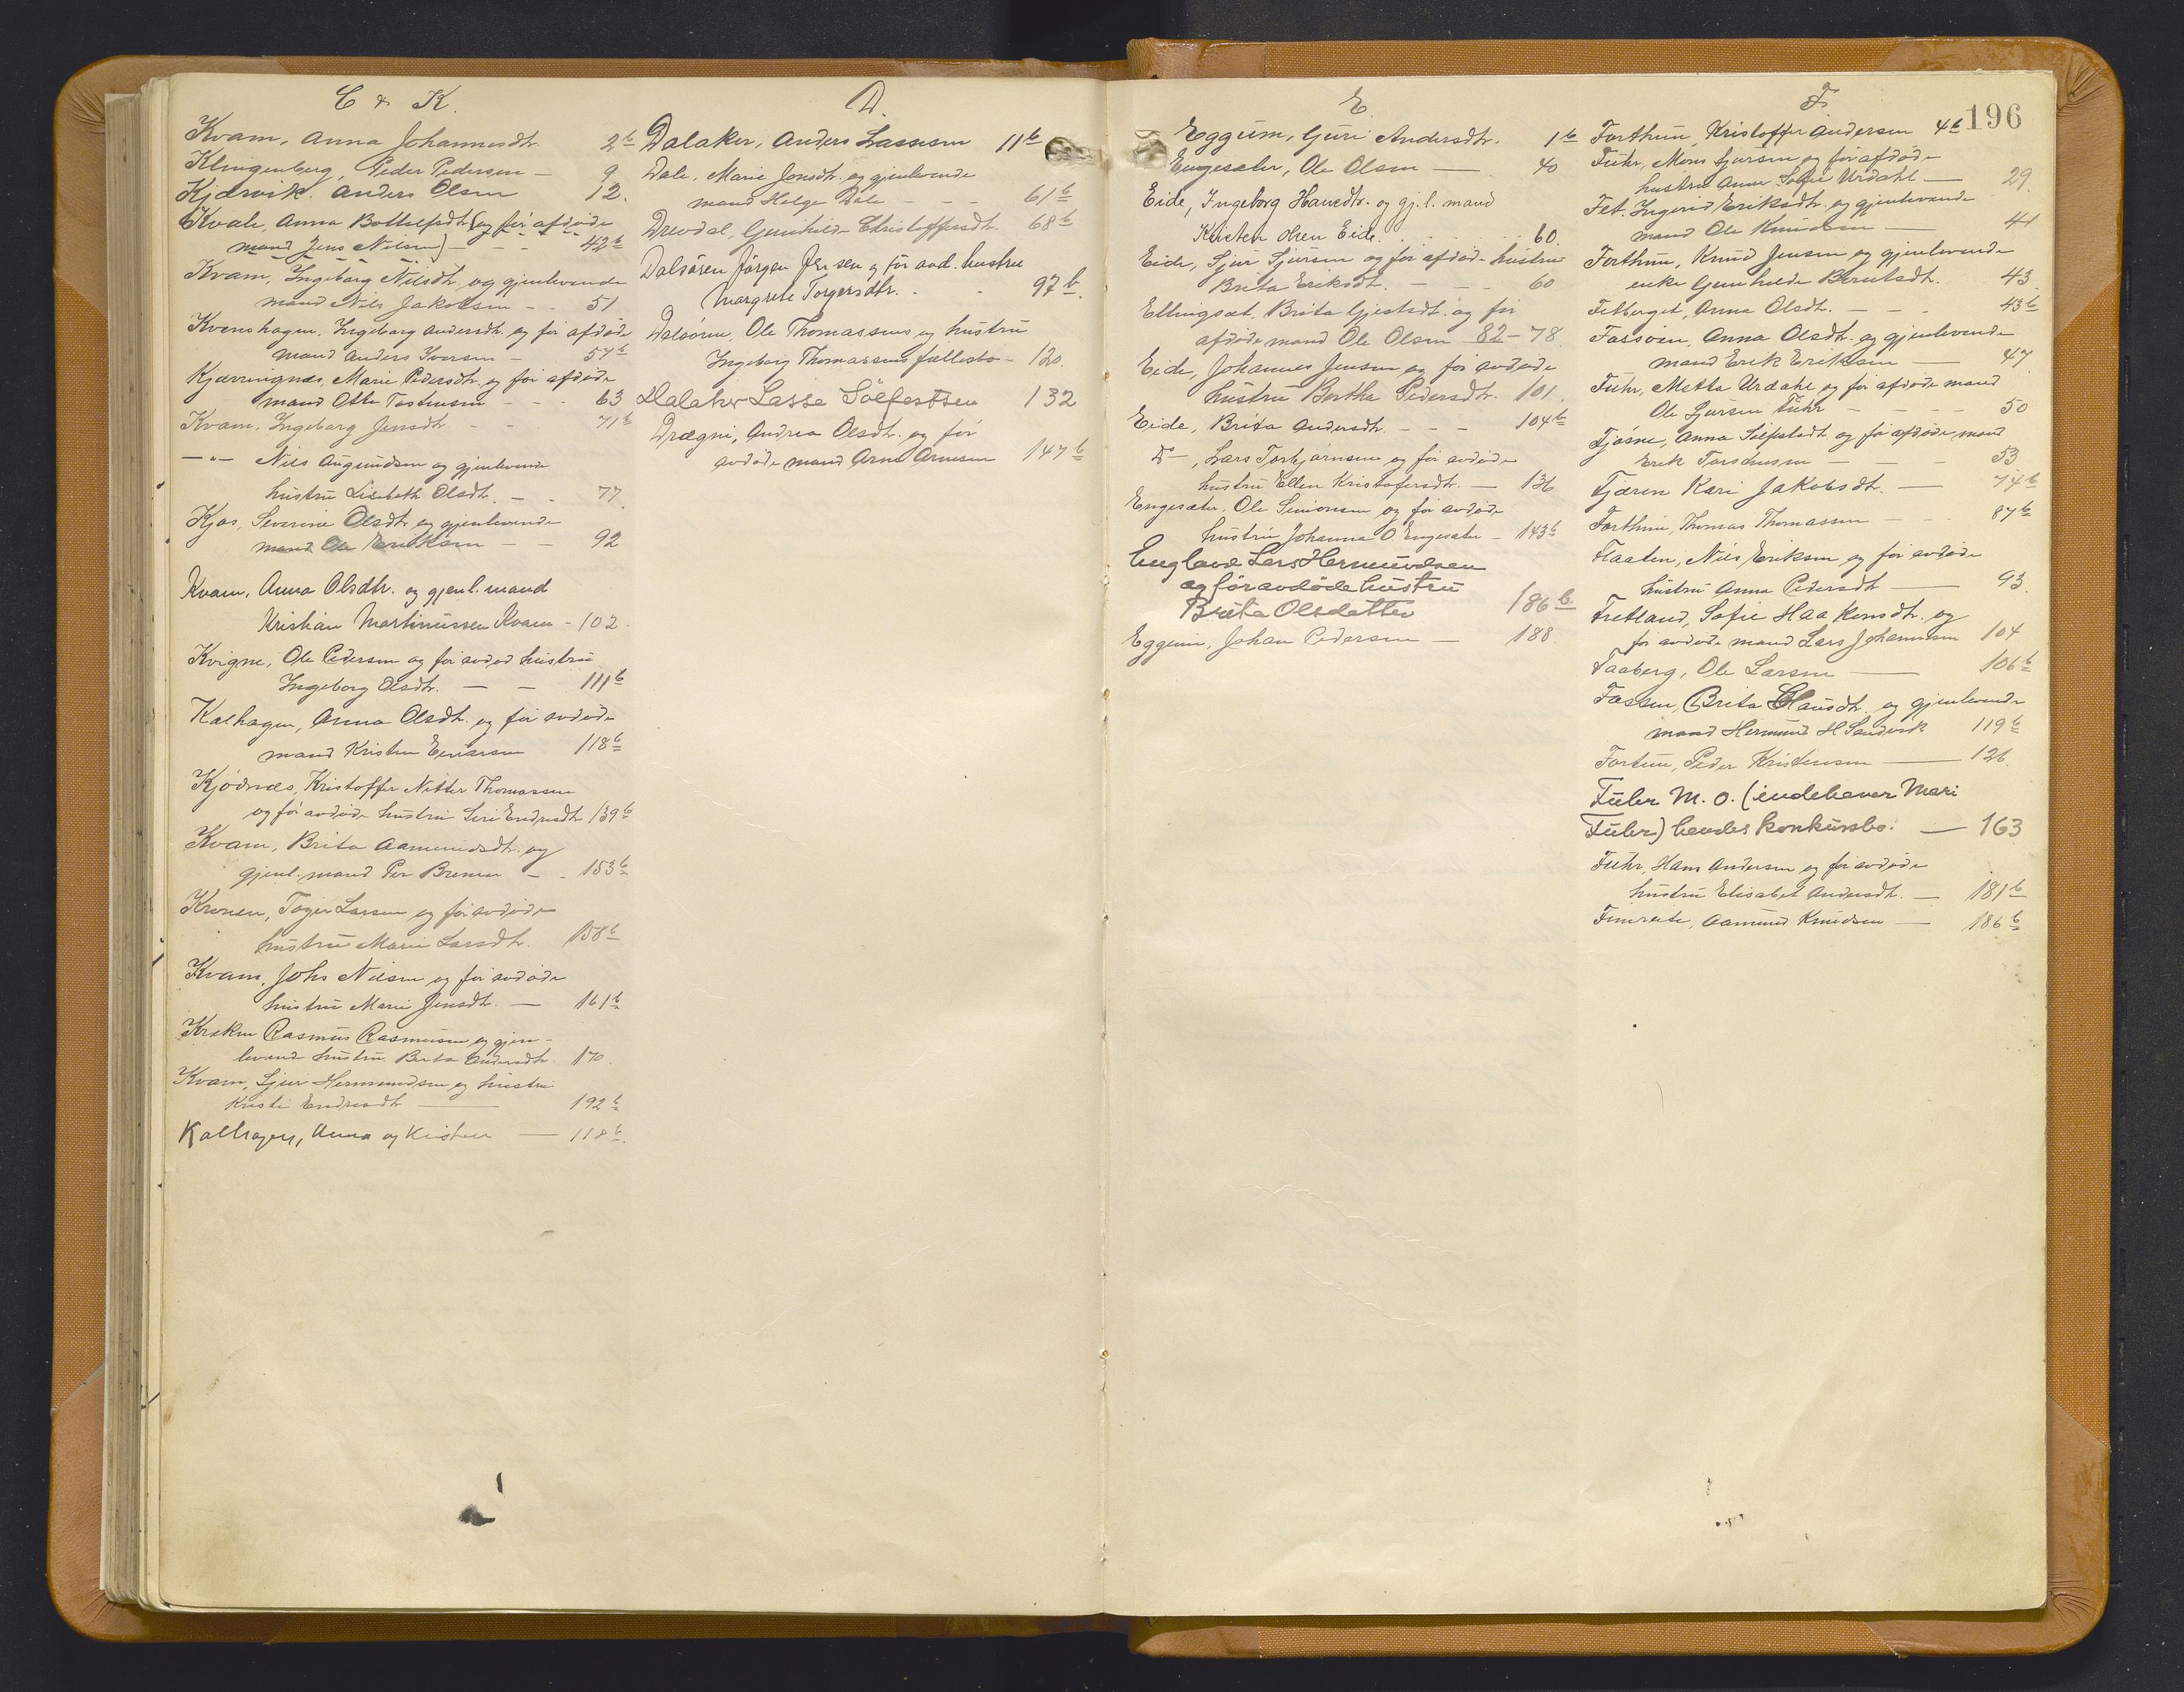 C & K.
Kvam, Anna Johannesdtr. 2b
Klingenberg, Peder Pedersen — 9
Kjærvik. Anders Olsen 12.
Kvale, Anna Bottolfsdtr. (og for afdøde
mand Jens Nilsen) — 42b
Kvam, Ingeborg Nilsdtr. og gjenlevende
mand Nils Jakobsen - - 51
Kvenshagen. Ingeborg Andersdtr. og for afdøde
mand Anders Iversen — 57b
Kjærringnes, Marie Pedersdtr. og for afdøde
mand Otte Tostensen - - - 63
Kvam, Ingeborg Jensdtr. - - 71b
— " — Nils Augundsen og gjenlevende
hustru Lisebeth Olsdtr. — - 77.
Kjos, Severine Olsdtr. og gjenlevende
mand Ole Eriksen — — 92
Kvam, Anna Olsdtr. og gjenl. mand
Kristian Martinussen Kvam - 102.
Kvigne, Ole Pedersen og for avdød hustru
Ingeborg Olsdtr. — — 111b
Kalhagen, Anna Olsdtr. og for avdøde
mand Kristen Einarsen 118b
Kjødnes, Kristoffer Nitter Thomassen
og for avdøde hustru Siri Endresdtr. 139b
Kvam, Brita Aamundsdtr. og
gjenl. mand Per Bremer — - 153b
Kronen, Tøger Larsen og for avdøde
hustru Marie Larsdtr. 158b
Kvam, Johs Nilsen og for avdøde
hustru Marie Jensdtr. — 161b
Kroken Rasmus Rasmussen og gjen-
levende hustru Brita Andersdtr. 170.
Kvam, Sjur Hermundsen og hustru
Kristi Endresdtr — 192b
Kalhagen, Anna og Kristen — 118b.
D.
Dalaker, Anders Lassesen 11b
Dale, Marie Jonsdtr. og gjenlevende
mand Helge Dale - - - 61b
Drevdal, Gunhilda Christoffersdtr. 68b
Dalsøren Jørgen Jensen og for avd. hustru
Margrete Torgersdtr. - - 97b.
Dalsøren, Ole Thomassens og hustru
Ingeborg Thomassens fællesbo - 120.
Dalaker Lasse Sølfestsen 132
Drægni, Andrea Olsdtr. og for
avdøde mand Arne Arnesen 147b
E.
Eggum, Guri Andersdtr. 1b
Engesæter, Ole Olsen — 40
Eide, Ingeborg Hansdtr. og gj. l. mand
Kristen Olsen Eide. . . . . 60.
Eide, Sjur Sjursen og for afdøde hustru
Brita Eriksdtr. — - - 60
Ellingsæt. Brita Gjestsdtr. og for
afdøde mand Ole Olsen 82 - 78.
Eide, Johannes Jensen og for avdøde
hustru Bertha Pedersdtr. 101.
Eide, Brita Andersdtr. - - - 104b
Do —, Lars Torbjørnsen og for avdøde
hustru Ellen Kristofersdtr. — 136
Engesæter, Ole Simonsen og for avdøde
hustru Johanna O Engesæter - 143b
Engeland Lars Hermundsen
og for avdøde hustru
Brita Olsdatter 186b.
Eggum, Johan Pedersen — 188.
F.
196
Forthun, Kristoffer Andersen 4b
Fuhr, Mons Sjursen og for afdøde
hustru Anne Sofie Urdahl — 29.
Fet. Ingerid Eriksdtr. og gjenlevende
mand Ole Knudsen — 41
Forthun, Knud Jensen og gjenlevende
enke Gunhilde Berntsdtr. 43.
Fetberget, Anna Olsdtr. — - - 43b
Fossøen, Anna Olsdtr. og gjenlevende
mand Erik Eriksen — 47
Fuhr, Metta Urdahl og for afdøde mand
Ole Sjursen Fuhr — - - - 50
Fjøsne, Anna Sølfestsdtr. og for afdøde mand
Erik Torstensen — — - 53
Fjæren Kari Jakobsdtr. — 74b
Forthun, Thomas Thomassen - - 87b
Flaaten, Nils Eriksen og for avdøde
hustru Anna Pedersdtr — 93.
Fretland, Sofie Haakensdtr. og
for avdøde mand Lars Johannesen 104
Faaberg, Ole Larsen — 106b
Fossen, Brita Hansdtr. og gjenlevende
mand Hermund H Sandvik 119b
Fortun, Peder Kristensen — 126.
Fuhr M. O. (indehaver Mari
Fuhr) hendes konkursbo. — 163
Fuhr, Hans Andersen og for avdøde
hustru Elisabet Andersdtr. — 181b
Fimreite, Aamund Knudsen — 186b